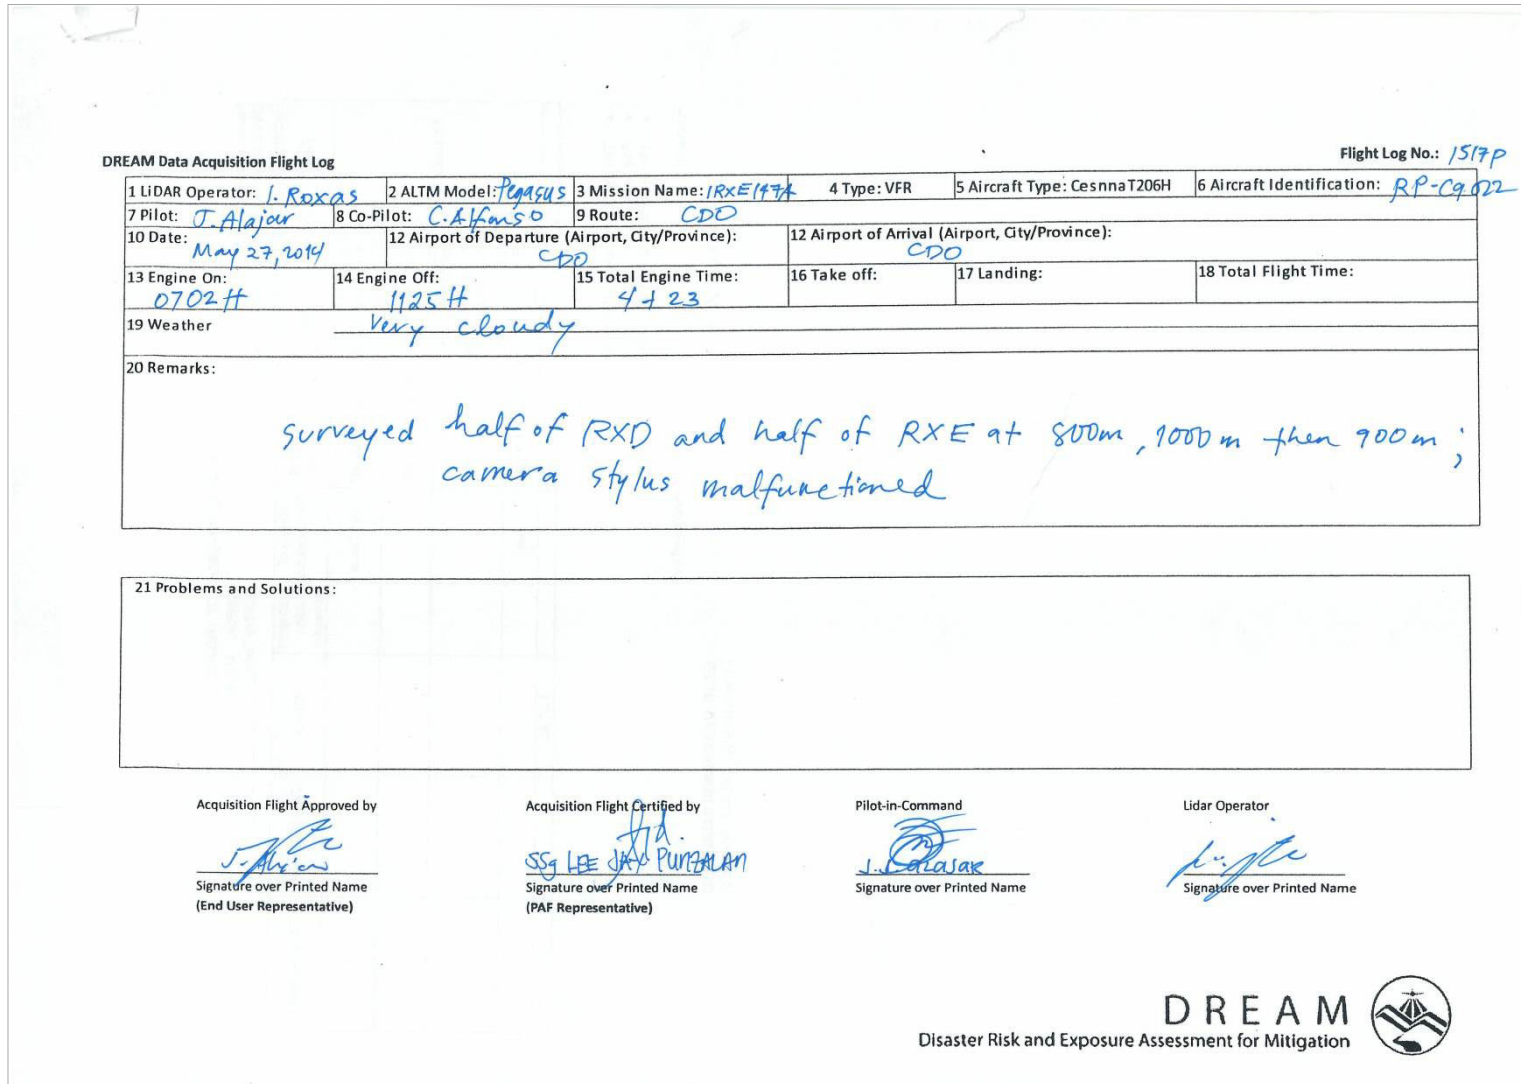 DREAM Data Acquisition Flight Log
Flight Log No.: 1517P
1 LiDAR Operator: I. Roxas 2 ALTM Model: Pegasus 3 Mission Name: 1RXE147A 4 Type: VFR 5 Aircraft Type: Cesnna T206H 6 Aircraft Identification: RP-C9022
7 Pilot: J. Alajar 8 Co-Pilot: C. Alfonso 9 Route: CDO
10 Date: May 27, 2014 12 Airport of Departure (Airport, City/Province): CDO 12 Airport of Arrival (Airport, City/Province): CDO
13 Engine On: 0702H 14 Engine Off: 1125H 15 Total Engine Time: 4+23 16 Take off: 17 Landing: 18 Total Flight Time:
19 Weather Very cloudy
20 Remarks:
surveyed half of RXD and half of RXE at 800m, 1000m then 900m;
camera stylus malfunctioned
21 Problems and Solutions:
Acquisition Flight Approved by Acquisition Flight Certified by Pilot-in-Command Lidar Operator
SSg LEE JAY PUNZALAN
Signature over Printed Name Signature over Printed Name Signature over Printed Name Signature over Printed Name
(End User Representative) (PAF Representative)
DREAM
Disaster Risk and Exposure Assessment for Mitigation